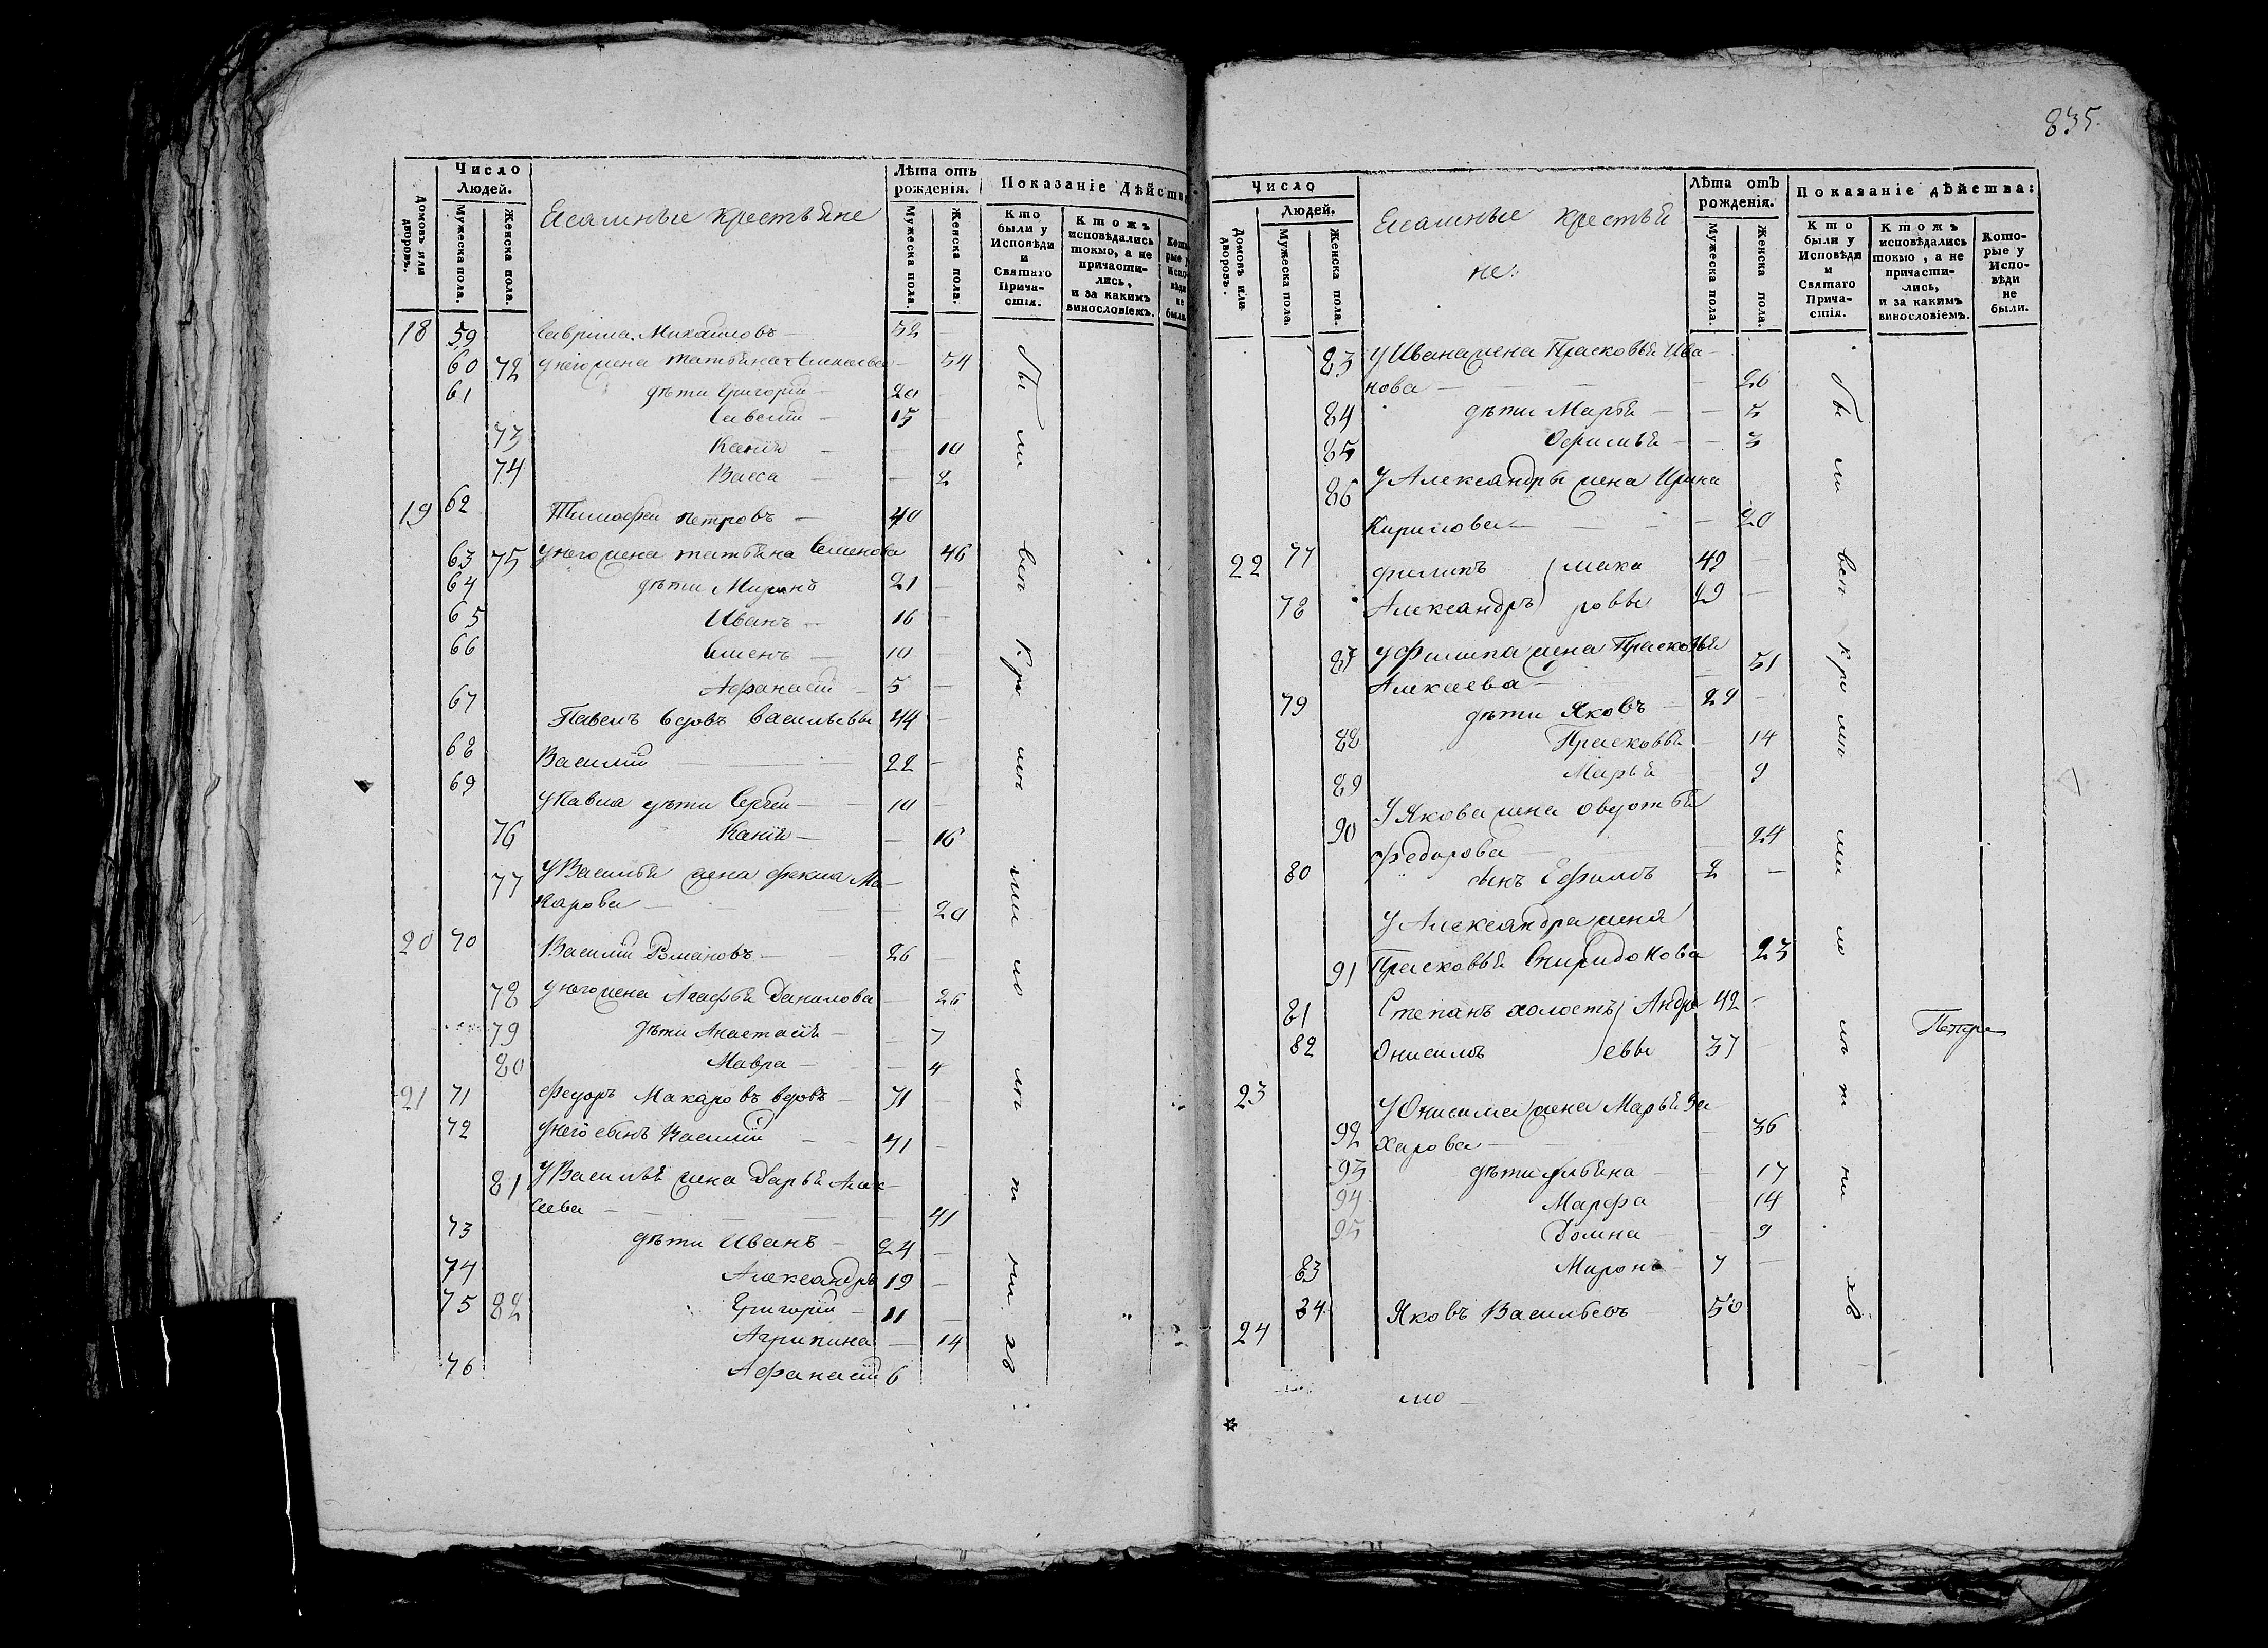 835.
Число
Людей.
Домовъ или дворовъ.
Мужеска пола.
Женска пола.
крестьяне
Лѣта отъ рожденія.
Мужеска пола.
Женска пола.
Показаніе Дѣйства
Кто были у Исповѣди и Святаго Прича-стія.
Ктожъ исповѣдались токмо, а не причасти-лись, и за какимъ винословіемъ.
18 59 Гаврила Михайловъ — 52
60 72 у него жена Татьяна — 54
61 дѣти Григорій — 20
Савелій — 15
73 Ксенія — 10
74 Васса — 2
19 62 Тимофей Петровъ — 40
63 75 у него жена Татьяна Семенова 46
64 дѣти Миронъ 21
65 Иванъ — 16
66 Семенъ — 10
Афанасій — 5
67 Павелъ вдовъ Васильевы 44
68 Василій — 22
69 у Павла дѣти Сергей — 10
76 Ксенія — 16
77 у Василья жена Фекла Ма-
карова — 20
20 70 Василій Романовъ — 26
78 у него жена Агафья Данилова — 26
79 дѣти Анастасія — 7
80 Мавра — 4
21 71 Федоръ Макаровъ вдовъ — 71
72 у него сынъ Василій — 41
81 у Василья жена Дарья Алек-
сеева — 41
73 дѣти Иванъ — 24
74 Александръ 19
75 82 Григорій — 11
Агрипина — 14
76 Афанасій 6
бы ли
Число
Людей.
Домовъ или дворовъ.
Мужеска пола.
Женска пола.
крестья
не:
Лѣта отъ рожденія.
Мужеска пола.
Женска пола.
Показаніе дѣйства:
Кто были у Исповѣди и Святаго Прича-стія.
Ктожъ исповѣдались токмо, а не причасти-лись, и за какимъ винословіемъ.
Кото-рые у Испо-вѣди не были.
83 у Ивана жена Прасковья Ива-
нова — 26
84 дѣти Марья — 5
85 Офимья — 3
86 у Александры жена Ирина
Кирилова — 20
22 77 Филипъ } Мака 49
78 Александръ } ровы 29
87 у Филипа жена Прасковья
Алексеева — 51
79 дѣти Яковъ — 29
88 Прасковья — 14
89 Марья 9
90 у Якова жена Овдотья
Федорова — 24
80 сынъ Ефимъ 2
у Александра жена
91 Прасковья Спиридонова 23
81 Степанъ холостъ } Андре 42
82 Онисимъ } евы 37
23 у Онисима жена Марья За
92 харова — 36
93 дѣти — 17
94 Марфа — 14
95 Домна — 9
83 Миронъ — 7
24 84 Яковъ Васильевъ 50
бы ли